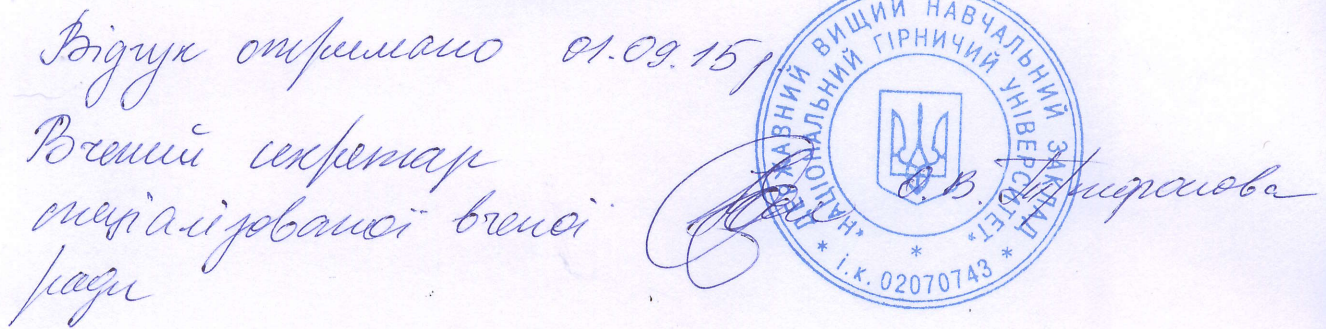 Відгук отримано 01.09.15 р.
Вчений секретар
спеціалізованої вченої
ради
О.В. Трифонова
ДЕРЖАВНИЙ ВИЩИЙ НАВЧАЛЬНИЙ ЗАКЛАД
«НАЦІОНАЛЬНИЙ ГІРНИЧИЙ УНІВЕРСИТЕТ»
* і.к. 02070743 *